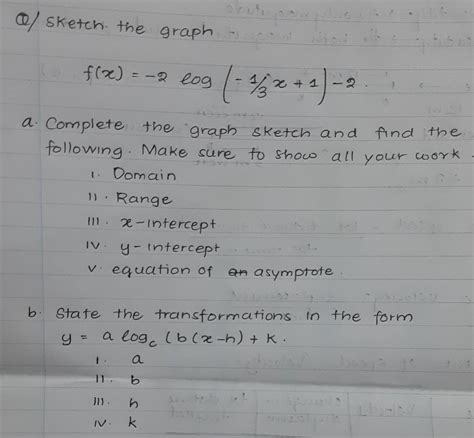 Q/ Sketch the graph
f(x) = -2 log (-1/3 x + 1) - 2.
a. Complete the graph sketch and find the
following. Make sure to show all your work.
I. Domain
II. Range
III. x-intercept
IV. y-intercept
V. equation of asymptote.
b. State the transformations in the form
y = a log_c (b(x-h) + k.
I. a
II. b
III. h
IV. k